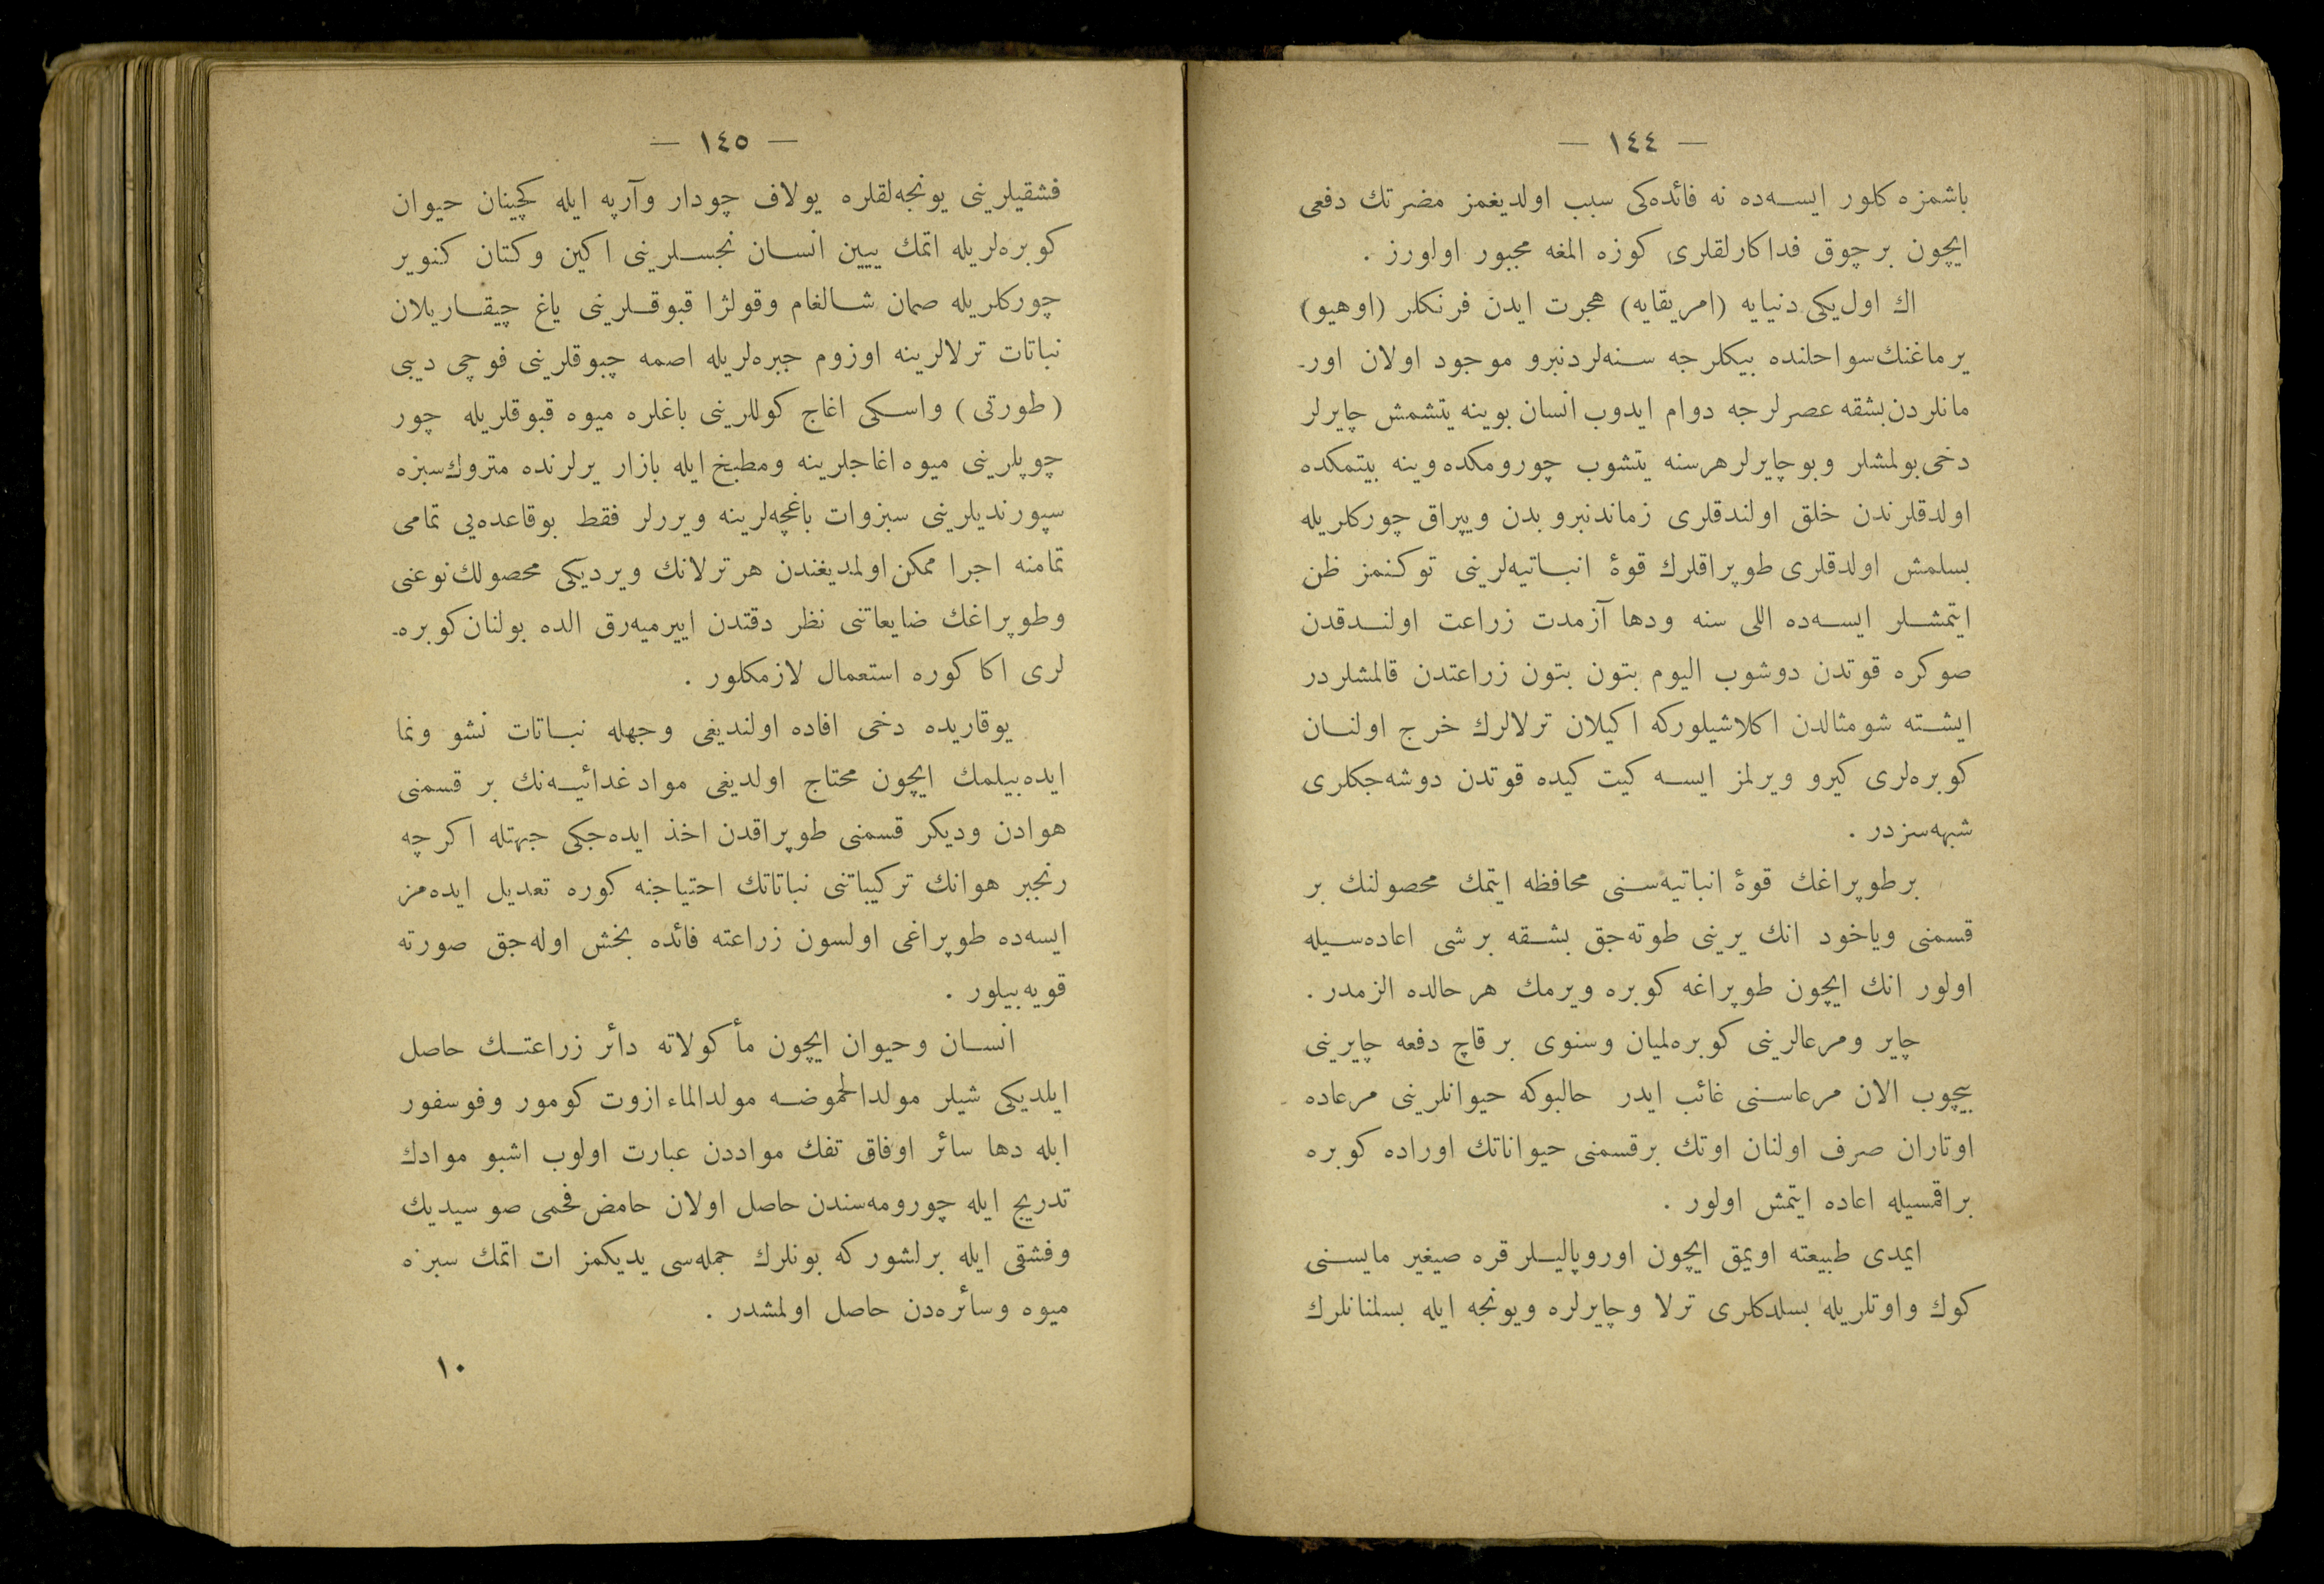 — ١٤٤ —
باشمزه كلور ایسه‌ده نه فائده‌كی سبب اولدیغمز مضرتك دفعی
ایچون برچوق فداكارلقلری كوزه المغه مجبور اولورز .
اك اول یكی دنیایه (امریقایه) هجرت ایدن فرنكلر (اوهیو)
یرماغنك سواحلنده بیكلرجه سنه‌لردنبرو موجود اولان اور-
مانلردن بشقه عصرلرجه دوام ایدوب انسان بوینه یتشمش چایرلر
دخی بولمشلر وبو چایرلر هر سنه یتشوب چورومكده وینه بیتمكده
اولدقلرندن خلق اولندقلری زماندنبرو بدن ویپراق چوركلریله
بسلمش اولدقلری طوپراقلرك قوهٔ انباتیه‌لرینی توكنمز ظن
ایتمشلر ایسه‌ده اللی سنه ودها آزمدت زراعت اولندقدن
صوكره قوتدن دوشوب الیوم بتون بتون زراعتدن قالمشلردر
ایشته شو مثالدن اكلاشیلوركه اكیلان ترلالرك خرج اولنان
كوبره‌لری كیرو ویرلمز ایسه كیت كیده قوتدن دوشه‌جكلری
شبهه‌سزدر .
بر طوپراغك قوهٔ انباتیه‌سنی محافظه ایتمك محصولنك بر
قسمنی ویاخود انك یرینی طوته‌جق بشقه بر شی اعاده‌سیله
اولور انك ایچون طوپراغه كوبره ویرمك هر حالده الزمدر .
چایر ومرعالرینی كوبره‌لمیان وسنوی بر قاچ دفعه چایرینی
بیچوب الان مرعاسنی غائب ایدر حالبوكه حیوانلرینی مرعاده
اوتاران صرف اولنان اوتك بر قسمنی حیواناتك اوراده كوبره
براقمسیله اعاده ایتمش اولور .
ایمدی طبیعته اویمق ایچون اوروپالیلر قره صیغیر مایسنی
كوك واوتلریله بسلدكلری ترلا وچایرلره ویونجه ایله بسلنانلرك
— ١٤٥ —
فشقیلرینی یونجه‌لقلره یولاف چودار وآرپه ایله كچینان حیوان
كوبره‌لریله اتمك ییین انسان نجسلرینی اكین وكتان كنویر
چوركلریله صمان شالغام وقولزا قبوقلرینی یاغ چیقاریلان
نباتات ترلالرینه اوزوم جبره‌لریله اصمه چبوقلرینی فوچی دیبی
(طورتی) واسكی اغاج كوللرینی باغلره میوه قبوقلریله چور
چوپلرینی میوه اغاجلرینه ومطبخ ایله بازار یرلرنده متروك سبزه
سپورندیلرینی سبزوات باغچه‌لرینه ویررلر فقط بوقاعده‌یی تمامی
تمامنه اجرا ممكن اولمدیغندن هر ترلانك ویردیكی محصولك نوعنی
وطوپراغك ضایعاتنی نظر دقتدن اییرمیه‌رق الده بولنان كوبره-
لری اكا كوره استعمال لازمكلور .
یوقاریده دخی افاده اولندیغی وجهله نباتات نشو ونما
ایده‌بیلمك ایچون محتاج اولدیغی مواد غدائیه‌نك بر قسمنی
هوادن ودیكر قسمنی طوپراقدن اخذ ایده‌جكی جهتله اكرچه
رنجبر هوانك تركیباتنی نباتاتك احتیاجنه كوره تعدیل ایده‌مز
ایسه‌ده طوپراغی اولسون زراعته فائده بخش اوله‌جق صورته
قویه‌بیلور .
انسان وحیوان ایچون مأكولاته دائر زراعتك حاصل
ایلدیكی شیلر مولدالحموضه مولدالماء ازوت كومور وفوسفور
ایله دها سائر اوفاق تفك موادdن عبارت اولوب اشبو موادك
تدریج ایله چورومه‌سندن حاصل اولان حامض فحمی صو سیدیك
وفشقی ایله برلشور كه بونلرك جمله‌سی یدیكمز ات اتمك سبزه
میوه وسائره‌دن حاصل اولمشدر .
١٠